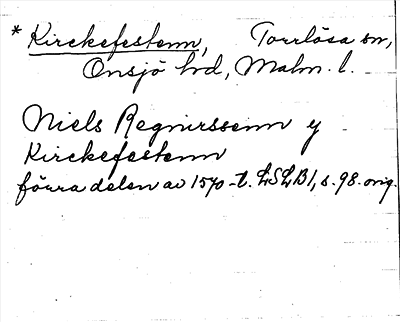 * Kirckefestenn, Torrlösa sn,
Onsjö hd, Malm. l.
Niels Regnerssenn y
Kirckefestenn
förra delen av 1570-t. LSLB 1, s. 98. orig.